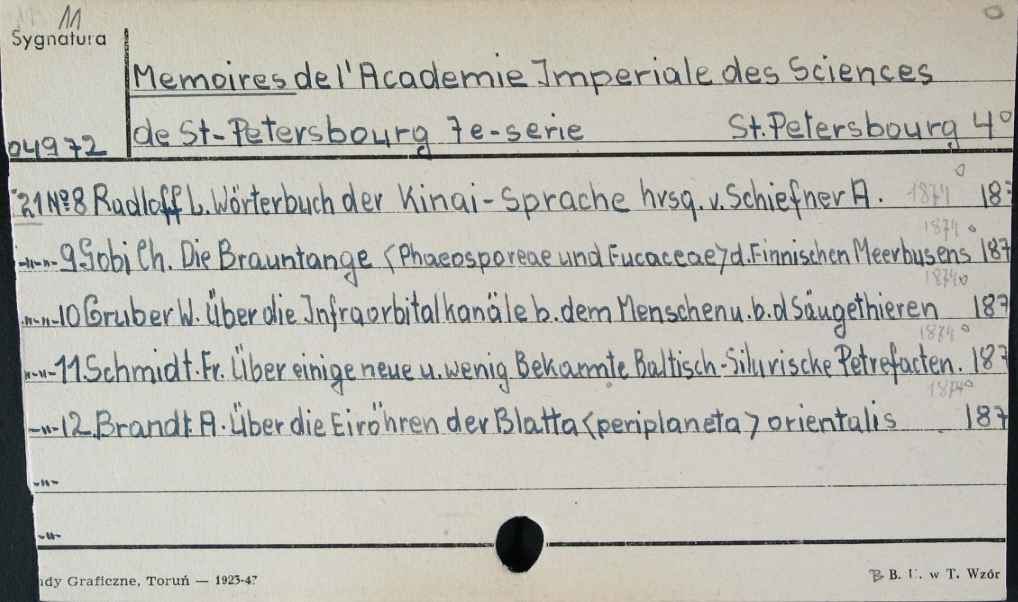 11
Sygnatura
Memoires de l'Academie Imperiale des Sciences
04972 de St-Petersbourg 7e-serie St. Petersbourg 4°
21 № 8 Radloff L. Wörterbuch der Kinai-Sprache hrsg. v. Schiefner A. 1874 187
1874
-"-"- 9 Gobi Ch. Die Brauntange <Phaeosporeae und Fucaceae> d. Finnischen Meerbusens 187
1874
-"-"- 10 Gruber W. Über die Infraorbitalkanäle b. dem Menschen u. b. d Säugethieren 187
1874
-"-"- 11 Schmidt. Fr. Über einige neue u. wenig Bekannte Baltisch-Silurische Petrefacten. 187
1874
-"- 12. Brandt A. Über die Eiröhren der Blatta <periplaneta> orientalis 187
-"-
-"-
ady Graficzne, Toruń — 1923-47 B B. U. w T. Wzór